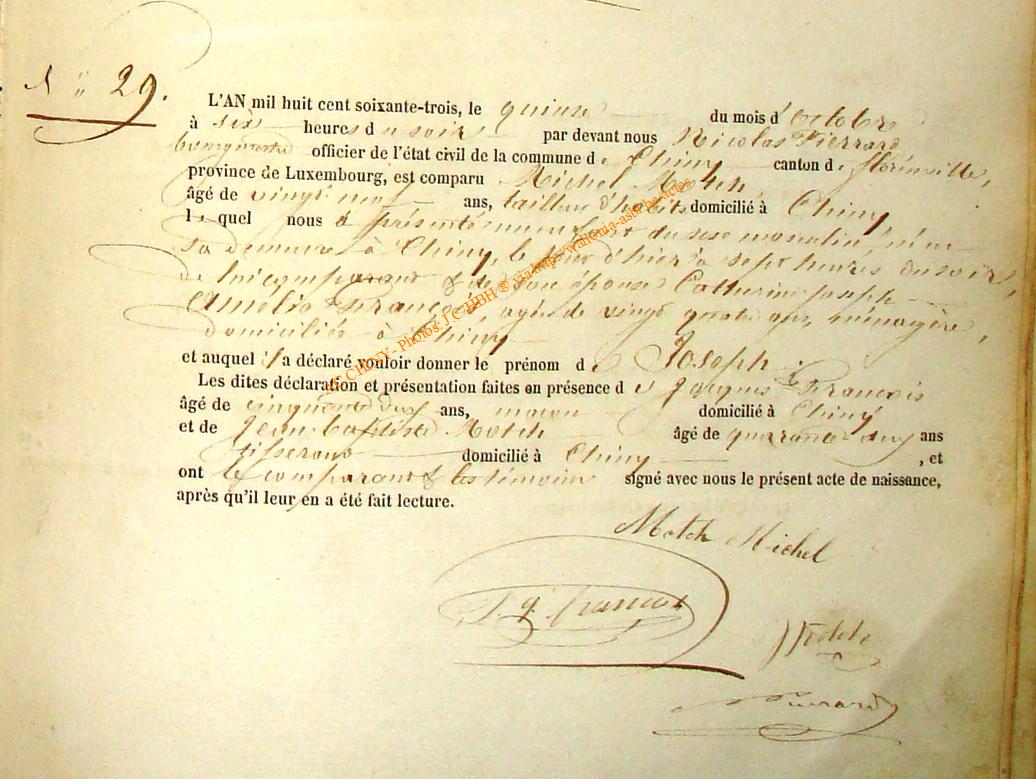 N° 29.
L'AN mil huit cent soixante-trois, le quinze du mois d'Octobre
à six heures du soir par devant nous Nicolas Pierrard
bourgmestre officier de l'état civil de la commune de Chiny canton de florenville,
province de Luxembourg, est comparu Michel Motch,
âgé de vingt neuf ans, tailleur d'habits domicilié à Chiny
lequel nous a présenté un enfant du sexe masculin né en
sa demeure à Chiny, le jour d'hier à sept heures du soir,
de lui comparant & de son épouse Catherine Joseph
Amélie François, agée de vingt quatre ans, ménagère,
domiciliés à Chiny
et auquel il a déclaré vouloir donner le prénom de Joseph.
Les dites déclaration et présentation faites en présence de Jacques François
âgé de cinquante deux ans, maçon domicilié à Chiny
et de Jean-Baptiste Motch âgé de quarante deux ans
tisserand domicilié à Chiny, et
ont le comparant & les témoins signé avec nous le présent acte de naissance,
après qu'il leur en a été fait lecture.
Motch Michel
J. J. François
J Motch
Pierrard
CHINY - Photos: J.C. HBH ® via http/wallonia-asbl.be/actes